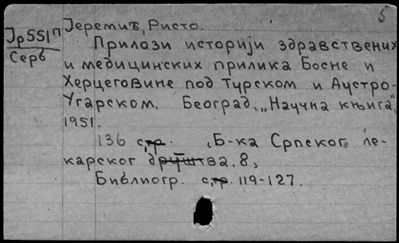 5
Јеремић, Ристо.
Јр551п
Серб
Прилози историји здравствених
и медицинских прилика Босне и
Херцеговине под Турском и Аустро-
Угарском. Београд, „Научна књига",
1951.
136 стр. (Б-ка Српског ле-
карског друштва. 8)
Библиогр. с. 119-127.